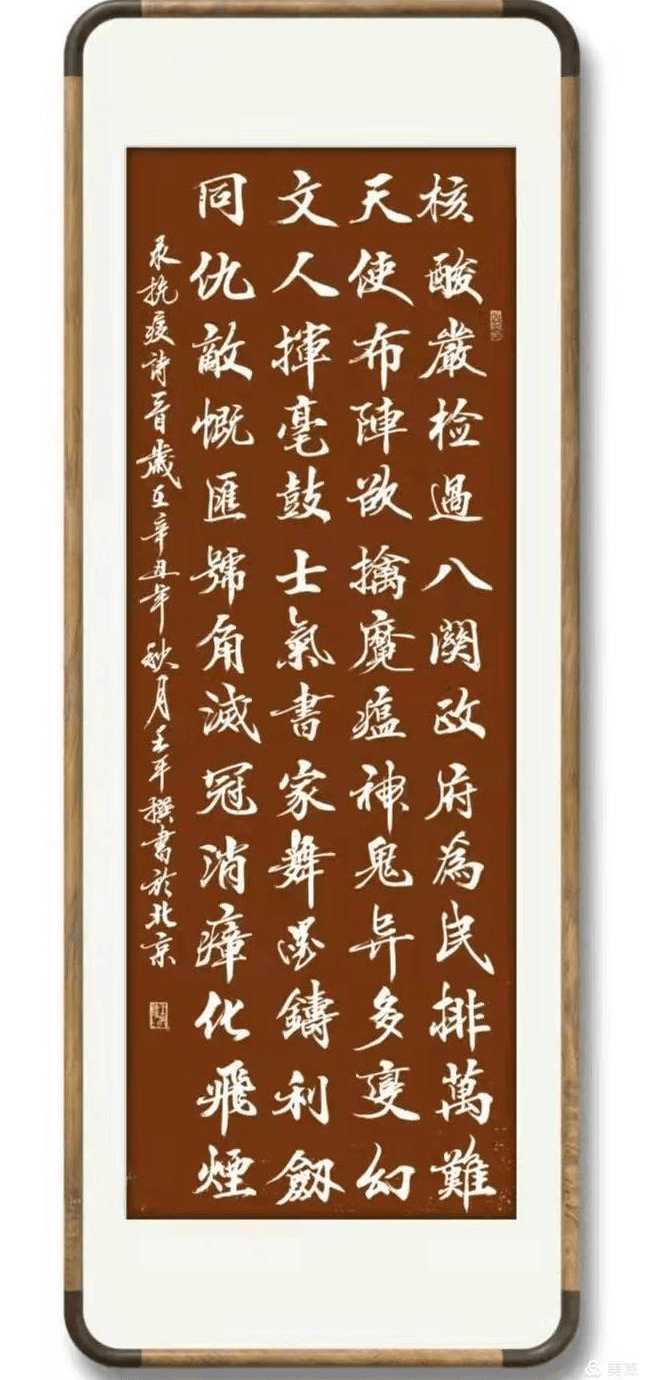 核酸嚴检過八関政府為民排萬難
天使布陣欲擒魔瘟神鬼异多变幻
文人揮毫鼓士氣書家舞墨鑄利劔
同仇敵慨匯號角滅冠消瘴化飛煙
录抗疫詩一首歲在辛丑年秋月王平撰書於北京
美篇